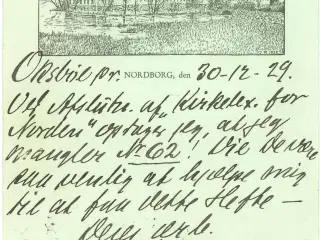 Oksböl pr. NORDBORG, den 30-12-29.
Ved Afslutn. af "Kirkelex. for
Norden" opdager jeg, at jeg
mangler No 62! Vil De være
saa venlig at hjælpe mig
til at faa dette Hefte —
Deres ærb.